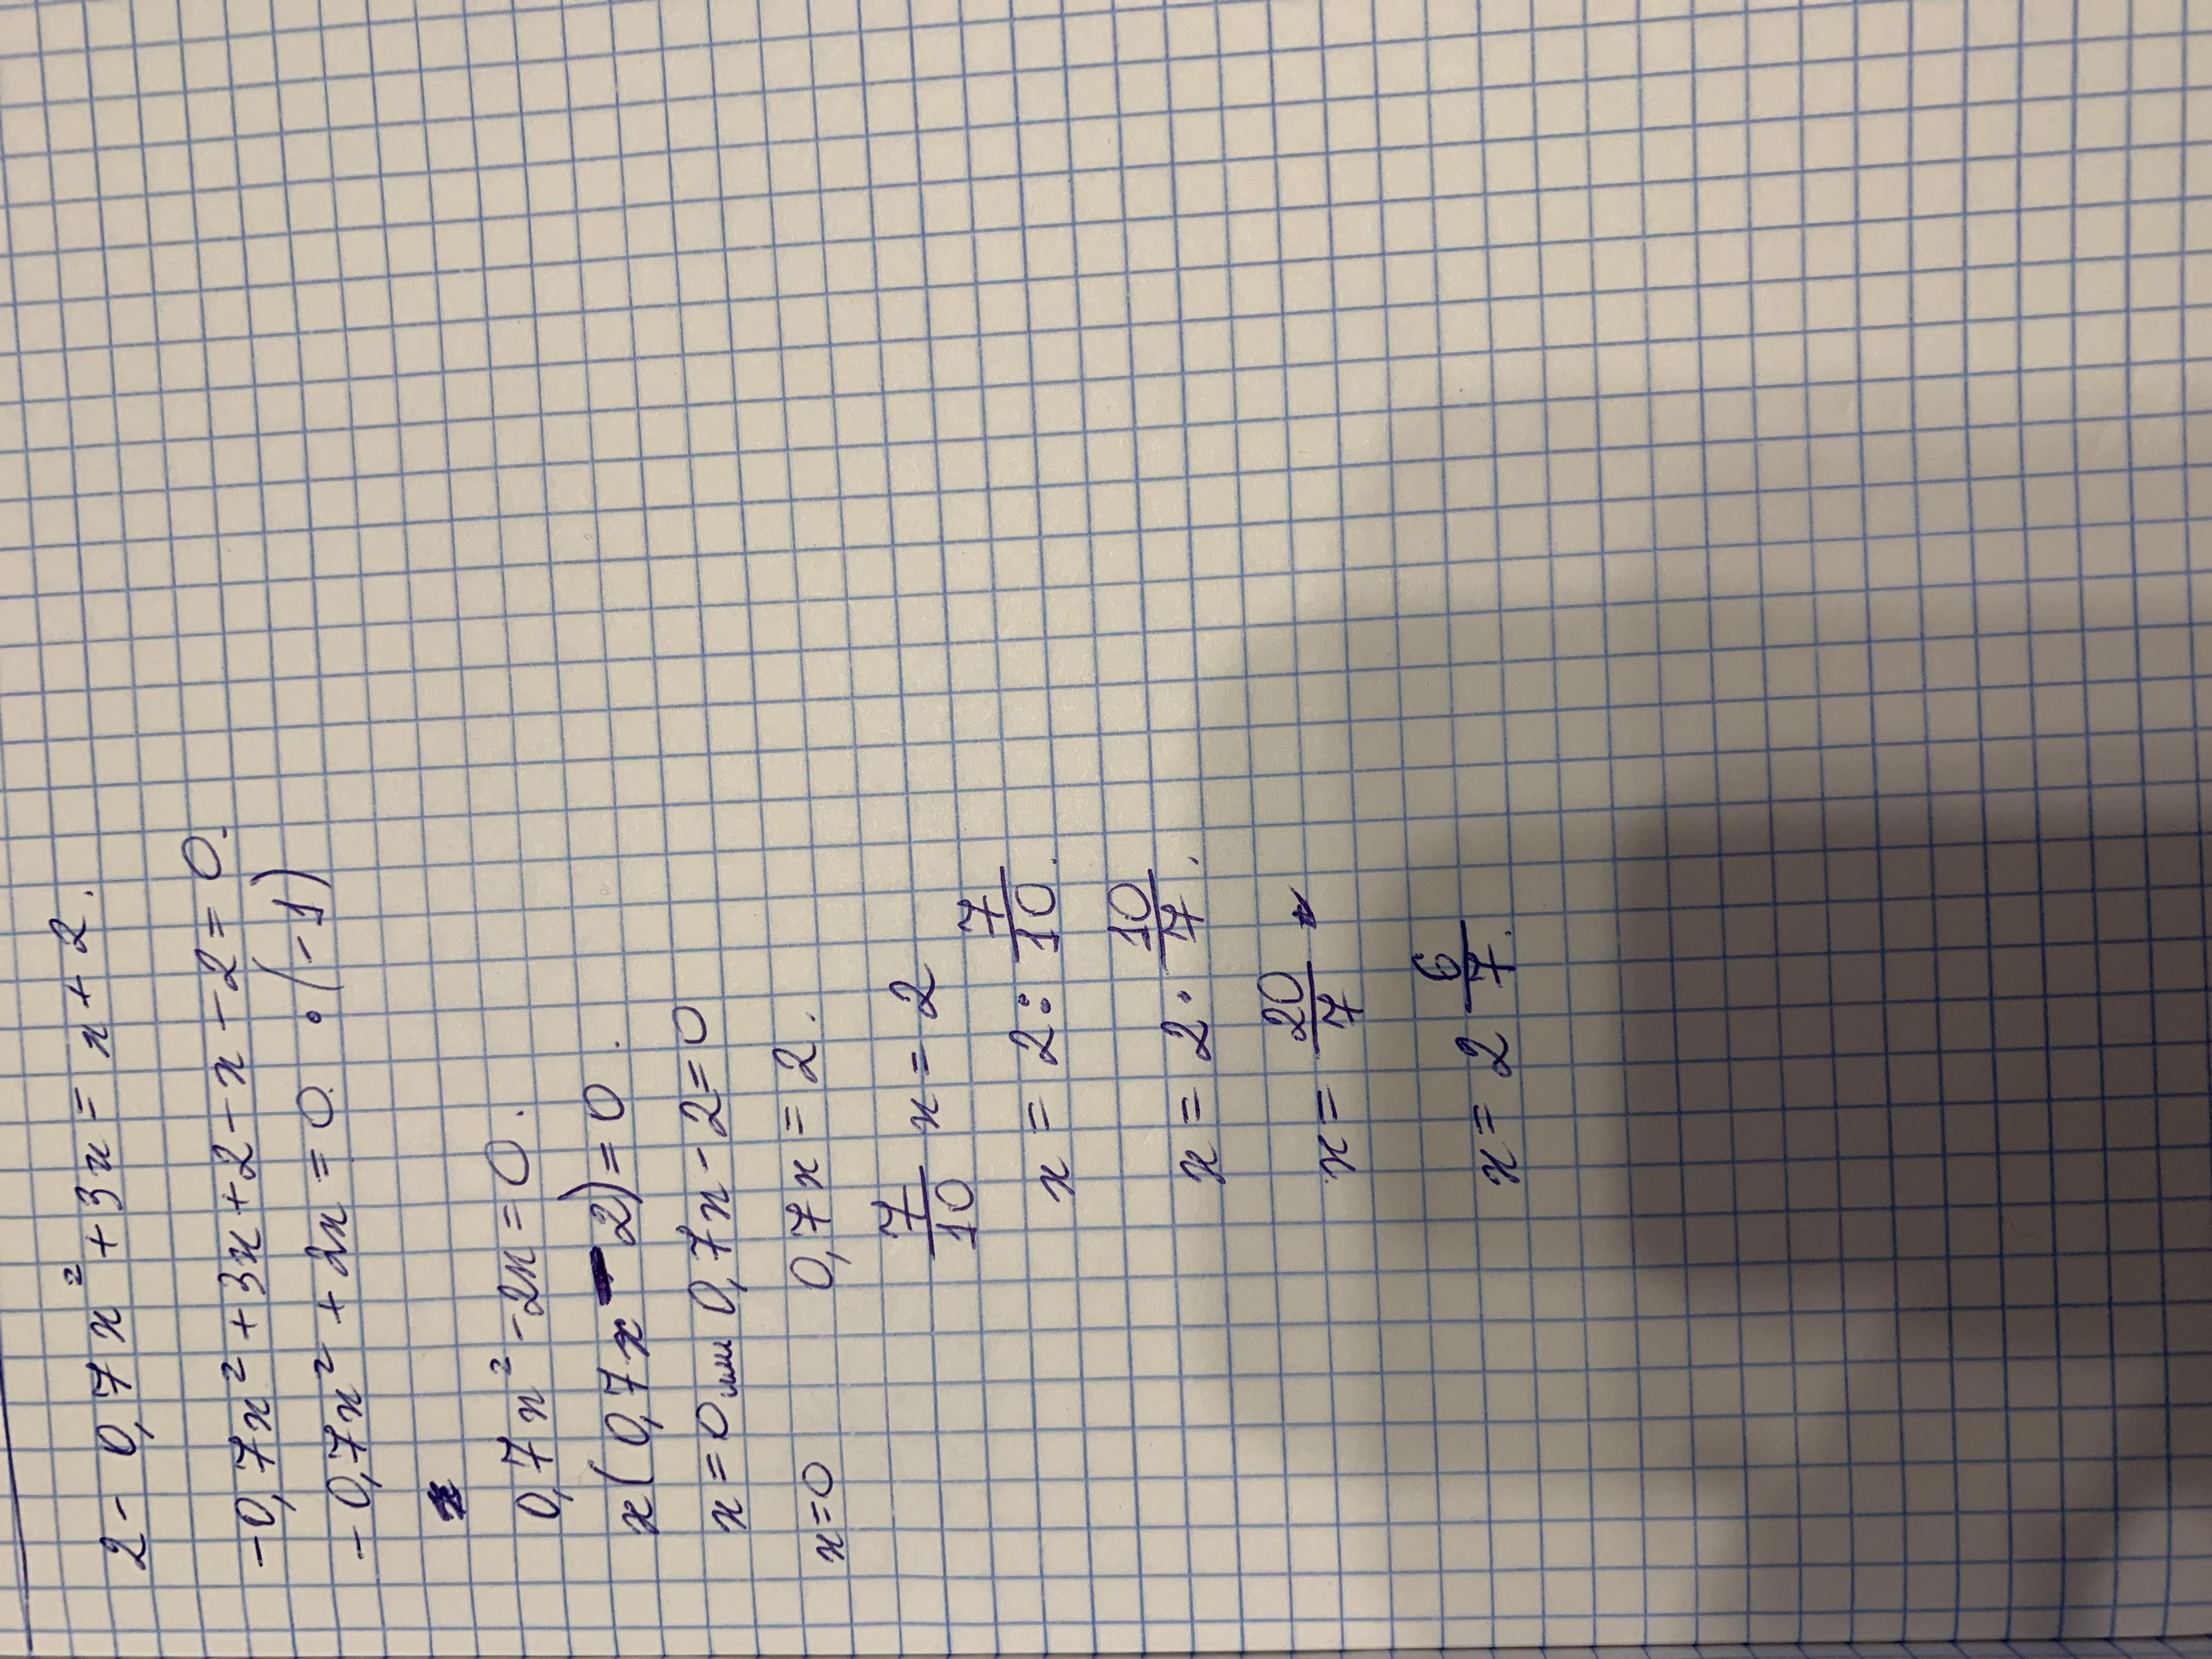 2 - 0,7x² + 3x = x + 2.
-0,7x² + 3x + 2 - x - 2 = 0.
- 0,7x² + 2x = 0. · (-1)
0,7x² - 2x = 0.
x(0,7x - 2) = 0.
x = 0 или 0,7x - 2 = 0
x = 0 0,7x = 2.
7/10 x = 2
x = 2 : 7/10.
x = 2 · 10/7.
x = 20/7
x = 2 6/7.